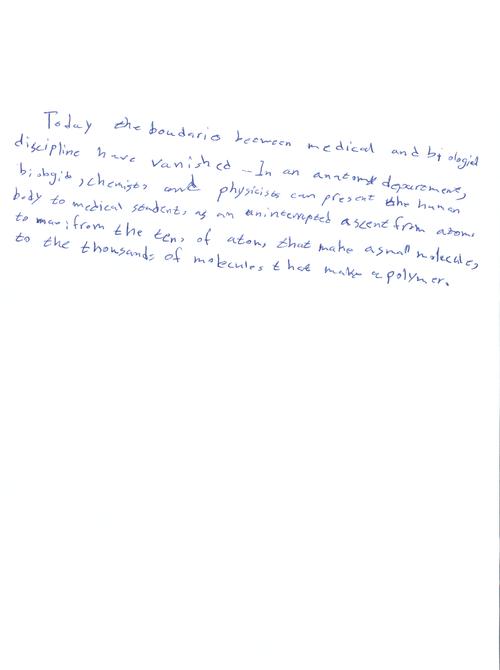 Today the boudaries between medical and biological
discipline have vanished - In an anatomy department,
biologists, chemists and physicists can present the human
body to medical students as an uninterrupted ascent from atoms
to man: from the tens of atoms that make a small molecules,
to the thousands of molecules that make a polymer.